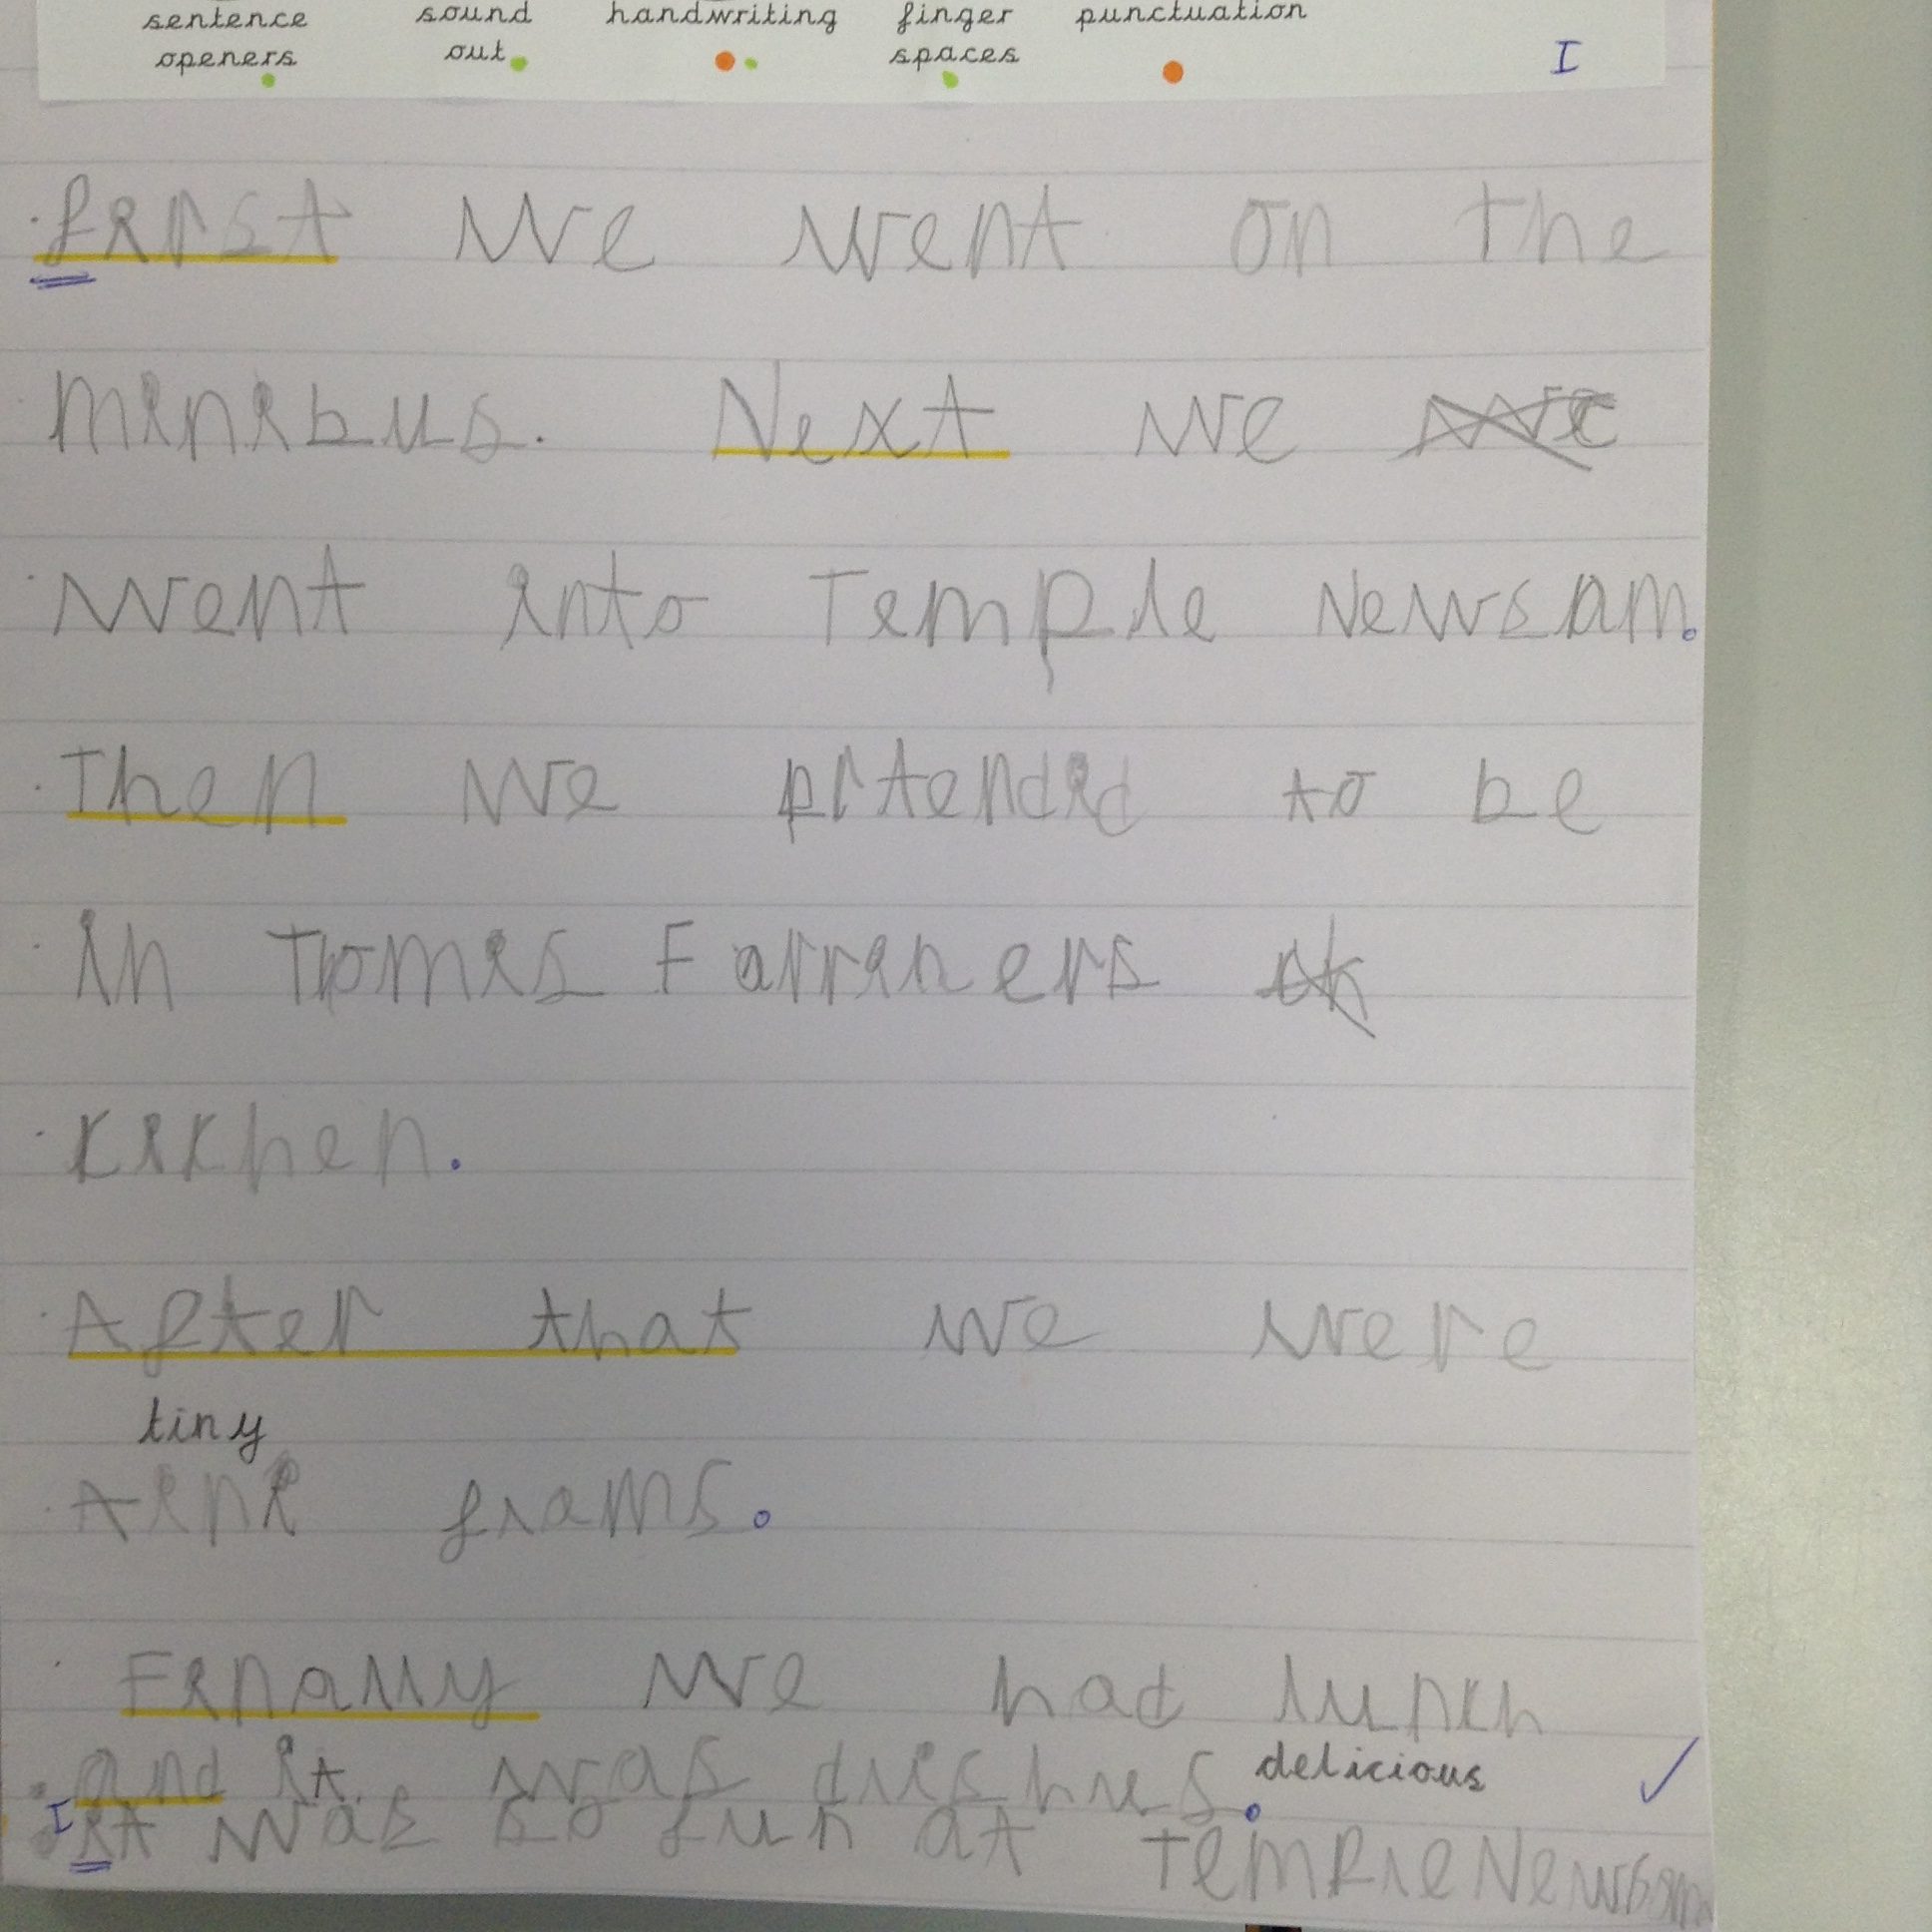 sentence sound handwriting finger punctuation
openers out spaces I
first we went on the
minibus. Next we
went into Temple Newsam.
Then we prtended to be
in Tomis Farriners
kickhen.
After that we were
tiny
tini frams.
Finally we had lunch
and it was dlishus. delicious
I it was so fun at Temple Newsam